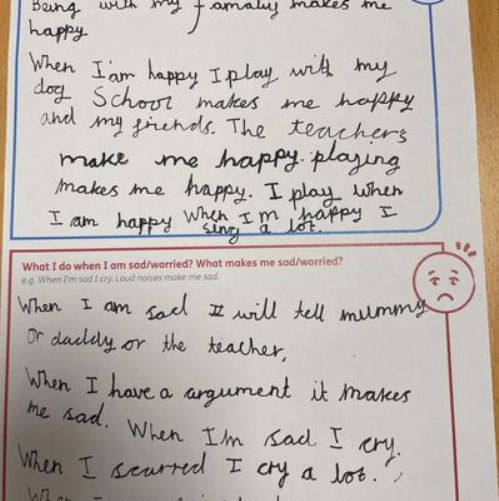 Being with my famaliy makes me
happy
When I'am happy I play with my
dog School makes me happy
and my friends. The teachers
make me happy. playing
makes me happy. I play when
I am happy When I'm happy I
sing a lot.
What I do when I am sad/worried? What makes me sad/worried?
e.g. When I'm sad I cry. Loud noises make me sad.
When I am sad I will tell mummy
or daddy or the teacher.
When I have a argument it makes
me sad. When I'm sad I cry.
When I scarred I cry a lot.
When I